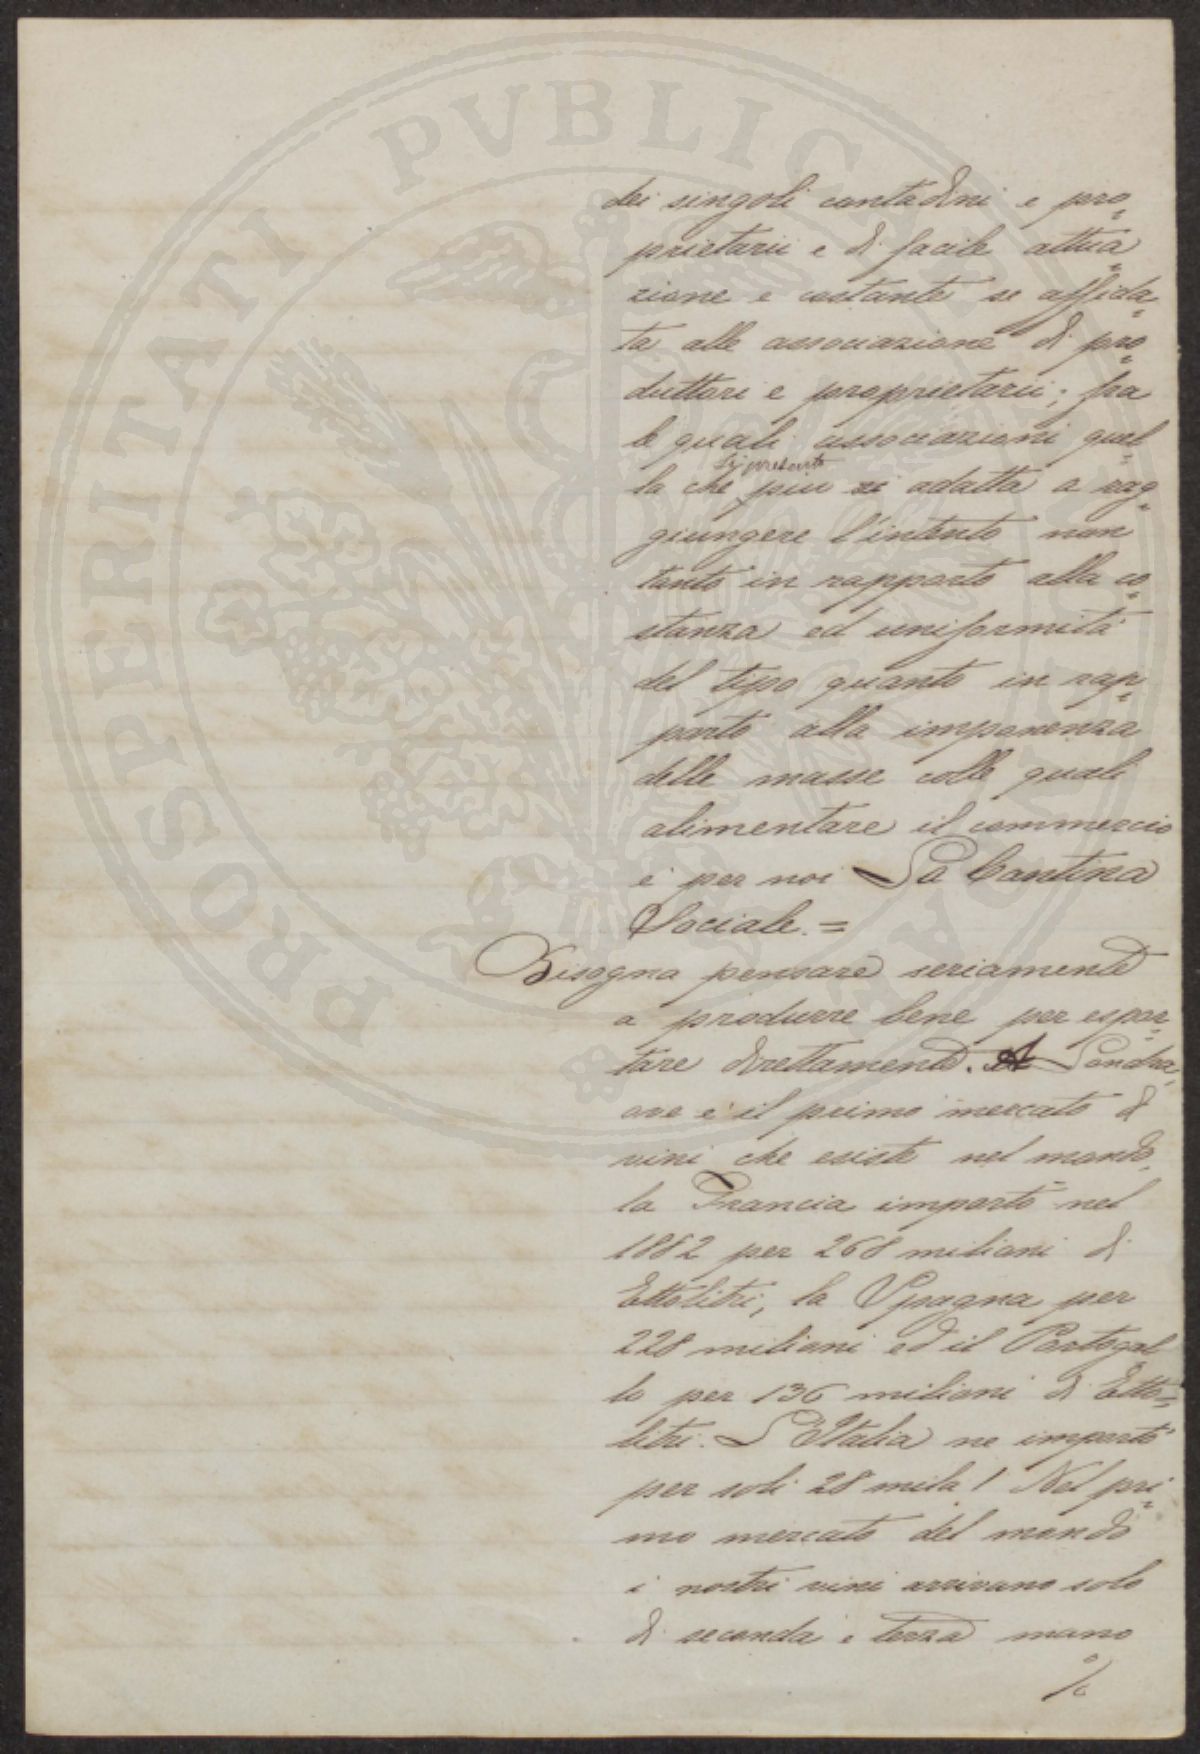 PROSPERITATI PVBLICAE
dei singoli contadini e pro=
prietarii e di facile attua=
zione e costante se affida=
ta alle associazione di pro=
duttori e proprietarii; fra
le quali associazioni quel=
si presenta
la che piu si adatta a rag=
giungere l'intento non
tanto in rapporto alla co=
stanza ed uniformità
del tipo quanto in rap=
porto alla imponenza
delle masse colle quali
alimentare il commercio
è per noi La Cantina
Sociale. =
Bisogna pensare seriamente
a produrre bene per espor=
tare direttamente. A Londra,
ove è il primo mercato di
vini che esiste nel mondo,
la Francia importò nel
1882 per 268 milioni di
Ettolitri, la Spagna per
228 milioni ed il Portogal
lo per 136 milioni di Etto=
litri. L'Italia ne importò
per soli 28 mila! Nel pri=
mo mercato del mondo
i nostri vini arrivano solo
di seconda e terza mano
%